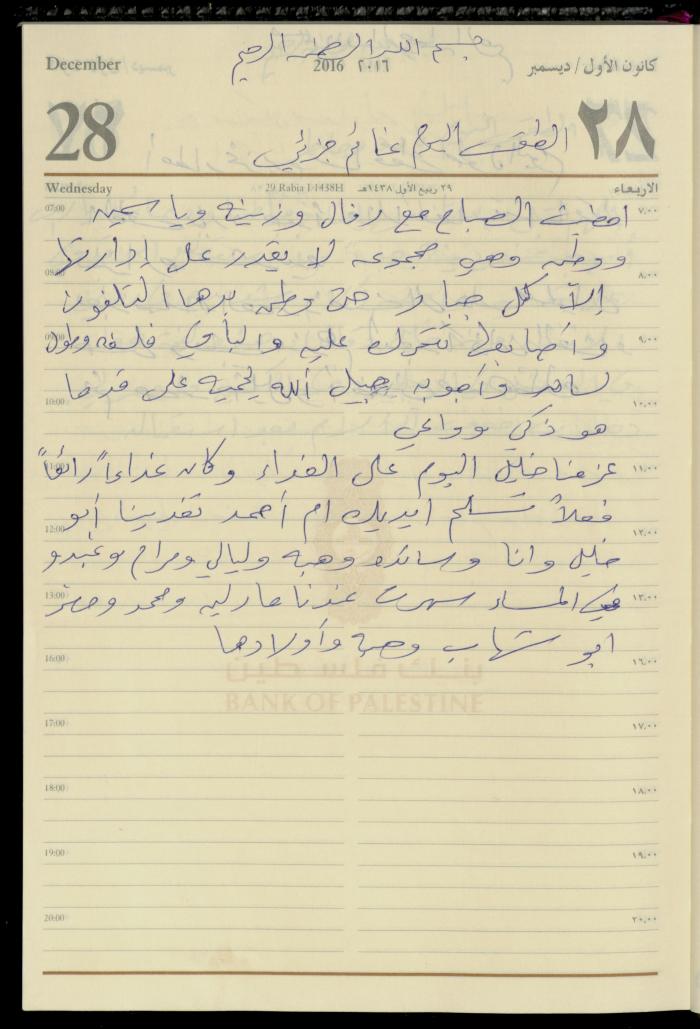 بسم الله الرحمن الرحيم
December 2016 ٢٠١٦ كانون الأول / ديسمبر
28 ٢٨
الطقس اليوم غائم جزئي
Wednesday 29 Rabia I 1438H ٢٩ ربيع الأول ١٤٣٨هـ الاربعاء
07:00 ٧:٠٠
امضيت الصباح مع رفال وزينه وياسمين
ووطن وهي مجموعه لا يقدر على إدارتها
08:00 ٨:٠٠
إلا كل جبار حتى وطن بدها التلفون
09:00 ٩:٠٠
وأصابعها تتحرك عليه والباقي فلسفه وطول
لسان وأجوبه الله يحميه على قد ما
10:00 ١٠:٠٠
هو ذكي وواعي
11:00 ١١:٠٠
عزمنا خليل اليوم على الغداء وكان غداءاً رائعاً
فعلاً تسلم ايديك ام أحمد تغدينا أبو
12:00 ١٢:٠٠
خليل وانا وهبه وليالي ومرام
13:00 ١٣:٠٠
في المساء سهرت عندنا ومحمد
ابو شهاب وأولادها
16:00 ١٦:٠٠
بنك فلسطين
BANK OF PALESTINE
17:00 ١٧:٠٠
18:00 ١٨:٠٠
19:00 ١٩:٠٠
20:00 ٢٠:٠٠